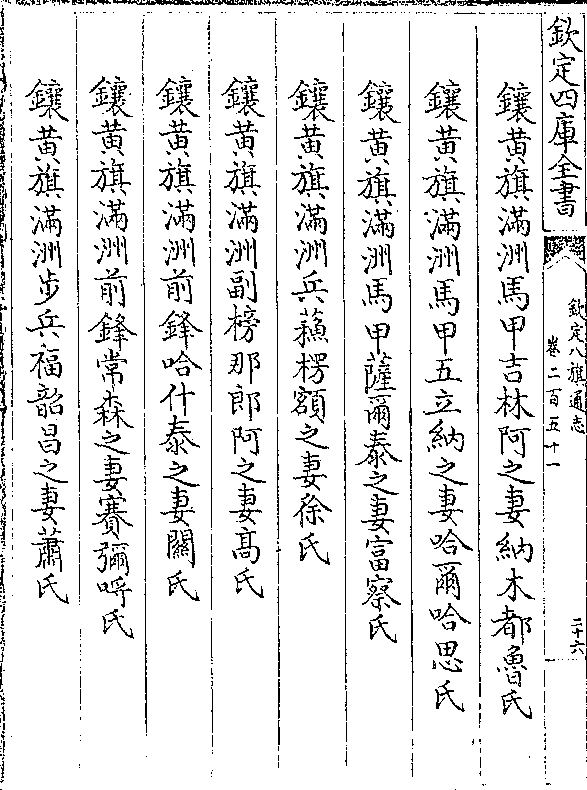 欽定四庫全書
欽定八旗通志
卷二百五十一
二十六
鑲黃旗滿洲馬甲吉林阿之妻納木都魯氏
鑲黃旗滿洲馬甲五立納之妻哈爾哈思氏
鑲黃旗滿洲馬甲薩爾泰之妻富察氏
鑲黃旗滿洲兵蘓楞額之妻徐氏
鑲黃旗滿洲副榜那郎阿之妻髙氏
鑲黃旗滿洲前鋒哈什泰之妻關氏
鑲黃旗滿洲前鋒常森之妻賽彌哷氏
鑲黃旗滿洲步兵福韶昌之妻蕭氏